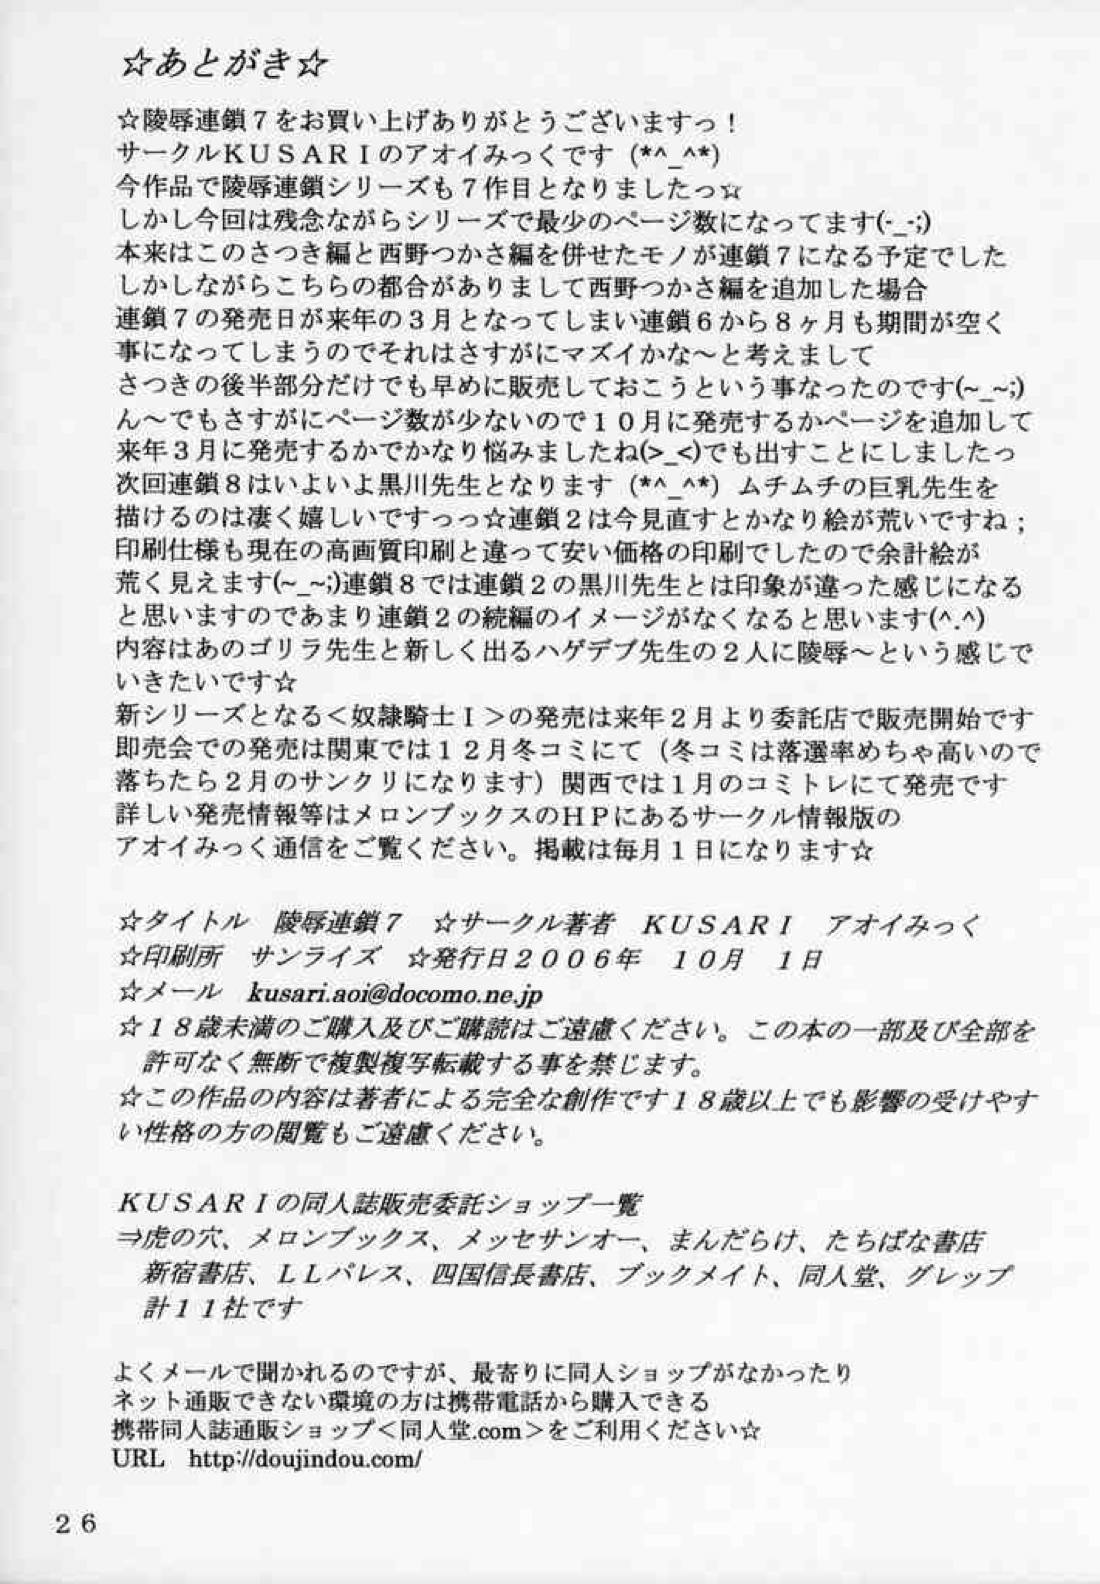 ☆あとがき☆
☆陵辱連鎖７をお買い上げありがとうございますっ！
サークルＫＵＳＡＲＩのアオイみっくです（*^_^*）
今作品で陵辱連鎖シリーズも７作目となりましたっ☆
しかし今回は残念ながらシリーズで最少のページ数になってます(-_-;)
本来はこのさつき編と西野つかさ編を併せたモノが連鎖７になる予定でした
しかしながらこちらの都合がありまして西野つかさ編を追加した場合
連鎖７の発売日が来年の３月となってしまい連鎖６から８ヶ月も期間が空く
事になってしまうのでそれはさすがにマズイかな～と考えまして
さつきの後半部分だけでも早めに販売しておこうという事なったのです(~_~;)
ん～でもさすがにページ数が少ないので１０月に発売するかページを追加して
来年３月に発売するかでかなり悩みましたね(>_<)でも出すことにしましたっ
次回連鎖８はいよいよ黒川先生となります（*^_^*）ムチムチの巨乳先生を
描けるのは凄く嬉しいですっっ☆連鎖２は今見直すとかなり絵が荒いですね；
印刷仕様も現在の高画質印刷と違って安い価格の印刷でしたので余計絵が
荒く見えます(~_~;)連鎖８では連鎖２の黒川先生とは印象が違った感じになる
と思いますのであまり連鎖２の続編のイメージがなくなると思います(^.^)
内容はあのゴリラ先生と新しく出るハゲデブ先生の２人に陵辱～という感じで
いきたいです☆
新シリーズとなる＜奴隷騎士Ｉ＞の発売は来年２月より委託店で販売開始です
即売会での発売は関東では１２月冬コミにて（冬コミは落選率めちゃ高いので
落ちたら２月のサンクリになります）関西では１月のコミトレにて発売です
詳しい発売情報等はメロンブックスのＨＰにあるサークル情報版の
アオイみっく通信をご覧ください。掲載は毎月１日になります☆
☆タイトル　陵辱連鎖７　☆サークル著者　ＫＵＳＡＲＩ　アオイみっく
☆印刷所　サンライズ　☆発行日２００６年　１０月　１日
☆メール　kusari.aoi@docomo.ne.jp
☆１８歳未満のご購入及びご購読はご遠慮ください。この本の一部及び全部を
許可なく無断で複製複写転載する事を禁じます。
☆この作品の内容は著者による完全な創作です１８歳以上でも影響の受けやす
い性格の方の閲覧もご遠慮ください。
ＫＵＳＡＲＩの同人誌販売委託ショップ一覧
⇒虎の穴、メロンブックス、メッセサンオー、まんだらけ、たちばな書店
新宿書店、ＬＬパレス、四国信長書店、ブックメイト、同人堂、グレップ
計１１社です
よくメールで聞かれるのですが、最寄りに同人ショップがなかったり
ネット通販できない環境の方は携帯電話から購入できる
携帯同人誌通販ショップ＜同人堂.com＞をご利用ください☆
URL　http://doujindou.com/
２６